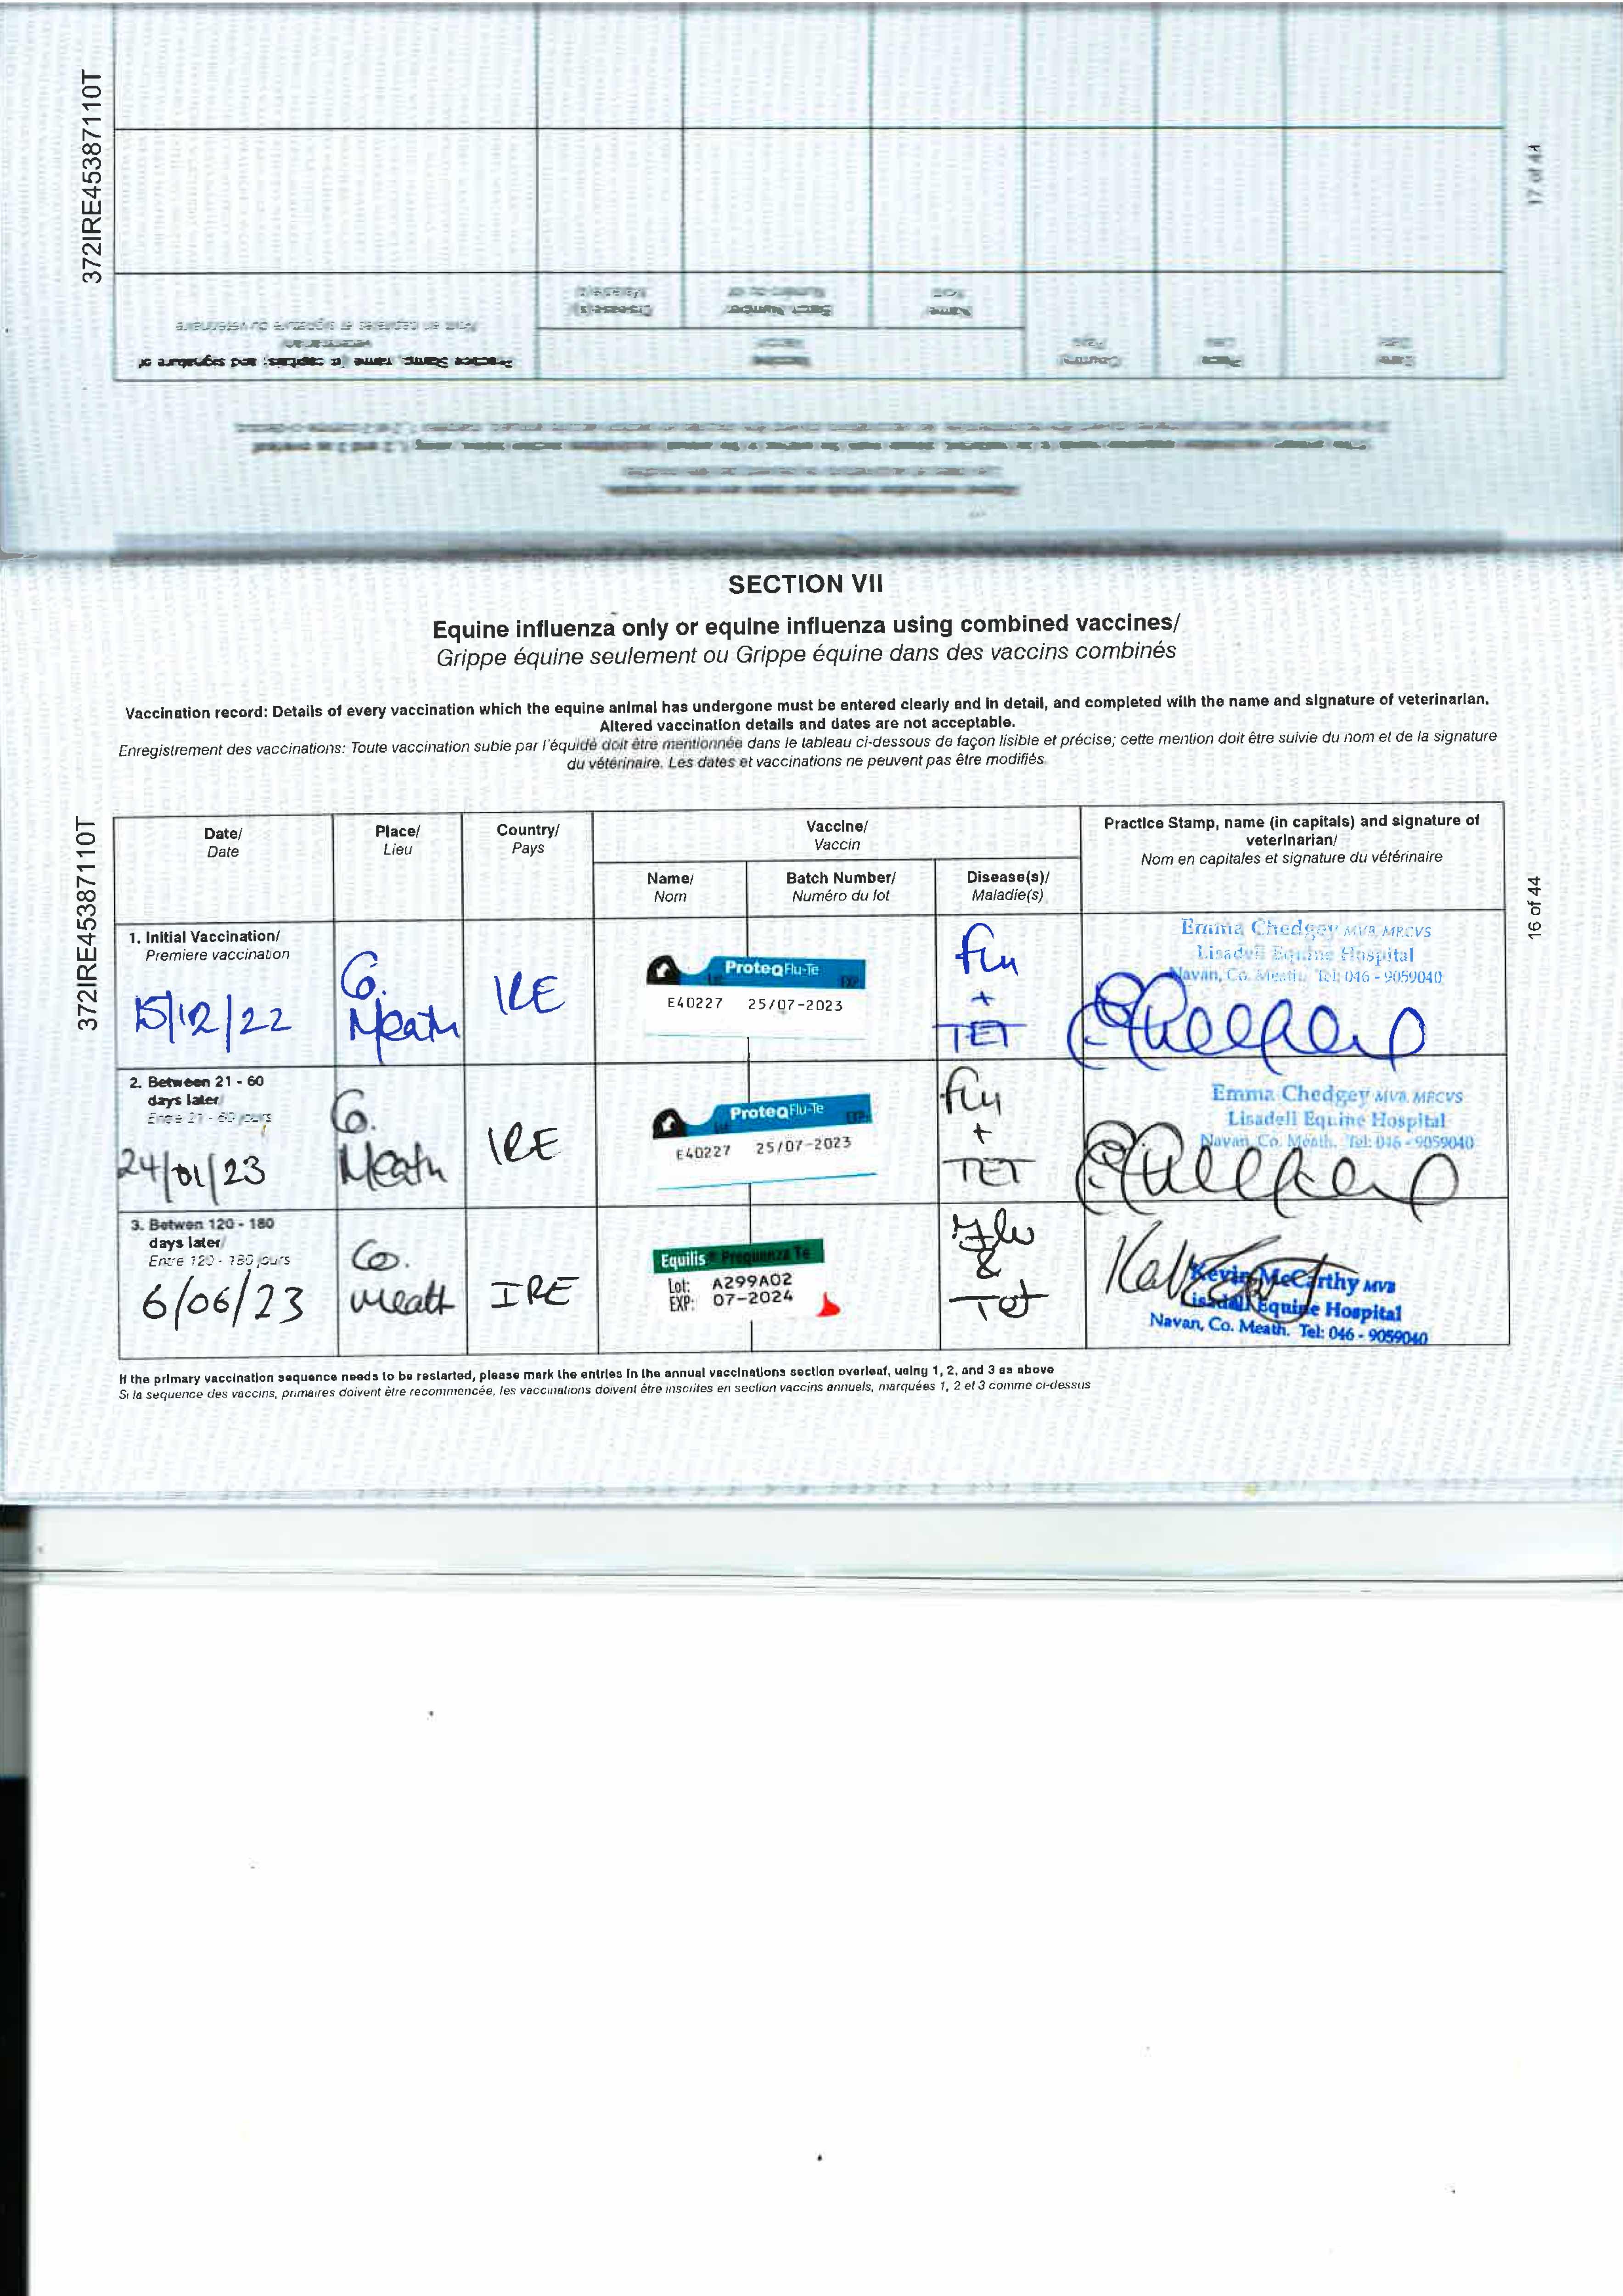 372IRE45387110T
17 of 44
Practice Stamp, name (in capitals) and signature of
veterinarian/
Nom en capitales et signature du vétérinaire
Disease(s)/
Maladie(s)
Batch Number/
Numéro du lot
Name/
Nom
SECTION VII
Equine influenza only or equine influenza using combined vaccines/
Grippe équine seulement ou Grippe équine dans des vaccins combinés
Vaccination record: Details of every vaccination which the equine animal has undergone must be entered clearly and in detail, and completed with the name and signature of veterinarian.
Altered vaccination details and dates are not acceptable.
Enregistrement des vaccinations: Toute vaccination subie par l'équidé doit être mentionnée dans le tableau ci-dessous de façon lisible et précise; cette mention doit être suivie du nom et de la signature
du vétérinaire. Les dates et vaccinations ne peuvent pas être modifiés.
372IRE45387110T
16 of 44
Date/
Date
Place/
Lieu
Country/
Pays
Vaccine/
Vaccin
Name/
Nom
Batch Number/
Numéro du lot
Disease(s)/
Maladie(s)
Practice Stamp, name (in capitals) and signature of
veterinarian/
Nom en capitales et signature du vétérinaire
1. Initial Vaccination/
Premiere vaccination
15/12/22
Co.
Meath
IRE
ProteqFlu-Te
E40227 25/07-2023
Flu
+
TET
Emma Chedgey MVB, MRCVS
Lisadell Equine Hospital
Navan, Co. Meath. Tel: 046 - 9059040
2. Between 21 - 60
days later/
Entre 21 - 60 jours
24/01/23
Co.
Meath
IRE
ProteqFlu-Te
E40227 25/07-2023
Flu
+
TET
Emma Chedgey MVB, MRCVS
Lisadell Equine Hospital
Navan, Co. Meath. Tel: 046 - 9059040
3. Betwen 120 - 180
days later/
Entre 120 - 180 jours
6/06/23
Co.
Meath
IRE
Equilis® Prequenza Te
Lot: A299A02
EXP: 07-2024
Flu
&
Tet
Kevin McCarthy MVB
Lisadell Equine Hospital
Navan, Co. Meath. Tel: 046 - 9059040
If the primary vaccination sequence needs to be restarted, please mark the entries in the annual vaccinations section overleaf, using 1, 2, and 3 as above
Si la sequence des vaccins, primaires doivent être recommencée, les vaccinations doivent être inscrites en section vaccins annuels, marquées 1, 2 et 3 comme ci-dessus